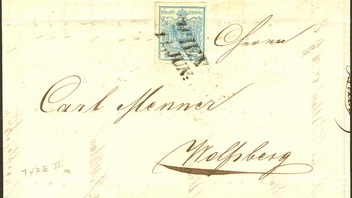 WIEN
14. JUN:
Herrn
Carl Menner
Wolfsberg
TYPE II